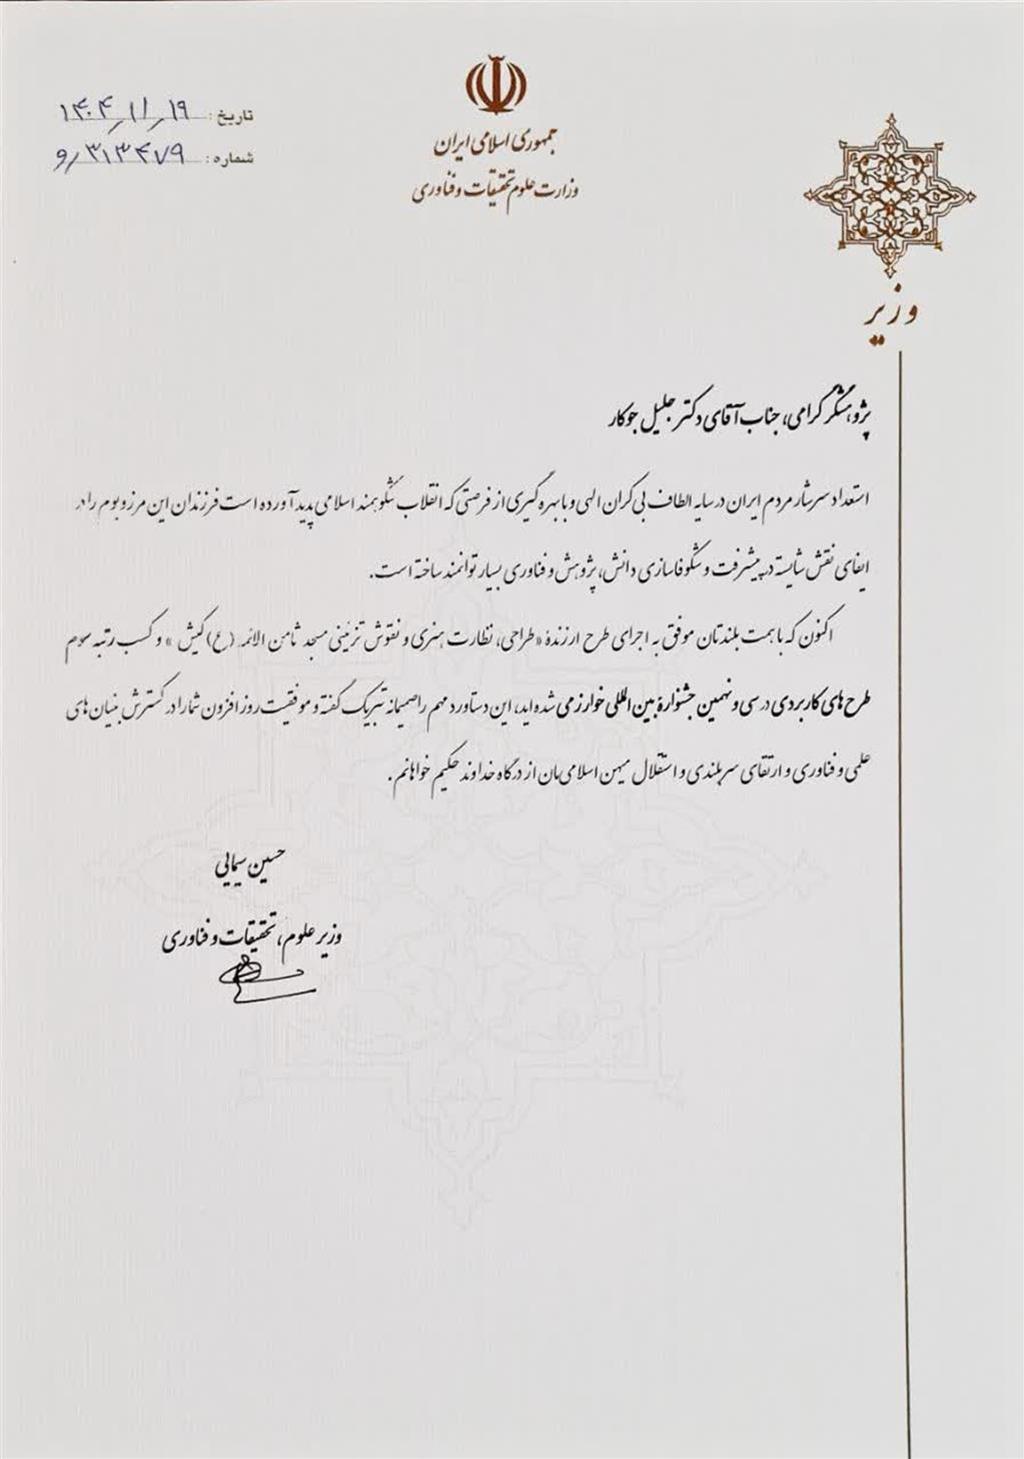 جمهوری اسلامی ایران
وزارت علوم تحقیقات و فناوری
تاریخ: ۱۴۰۴/۱۱/۱۹
شماره: ۳۱۳۴۷۹/و
وزیر
پژوهشگر گرامی، جناب آقای دکتر جلیل جوکار
استعداد سرشار مردم ایران در سایه الطاف بی کران الهی و با بهره گیری از فرصتی که انقلاب شکوهمند اسلامی پدید آورده است فرزندان این مرز و بوم را در
ایفای نقش شایسته در پیشرفت و شکوفاسازی دانش، پژوهش و فناوری بسیار توانمند ساخته است.
اکنون که با همت بلندتان موفق به اجرای طرح ارزندۀ «طراحی، نظارت هنری و نقوش تزئینی مسجد ثامن الائمه (ع) کیش » و کسب رتبه سوم
طرح های کاربردی در سی و نهمین جشنوارۀ بین المللی خوارزمی شده اید، این دستاورد مهم را صمیمانه تبریک گفته و موفقیت روز افزون شما را در گسترش بنیان های
علمی و فناوری و ارتقای سربلندی و استقلال میهن اسلامی مان از درگاه خداوند حکیم خواهانم .
حسین سیمایی
وزیر علوم، تحقیقات و فناوری